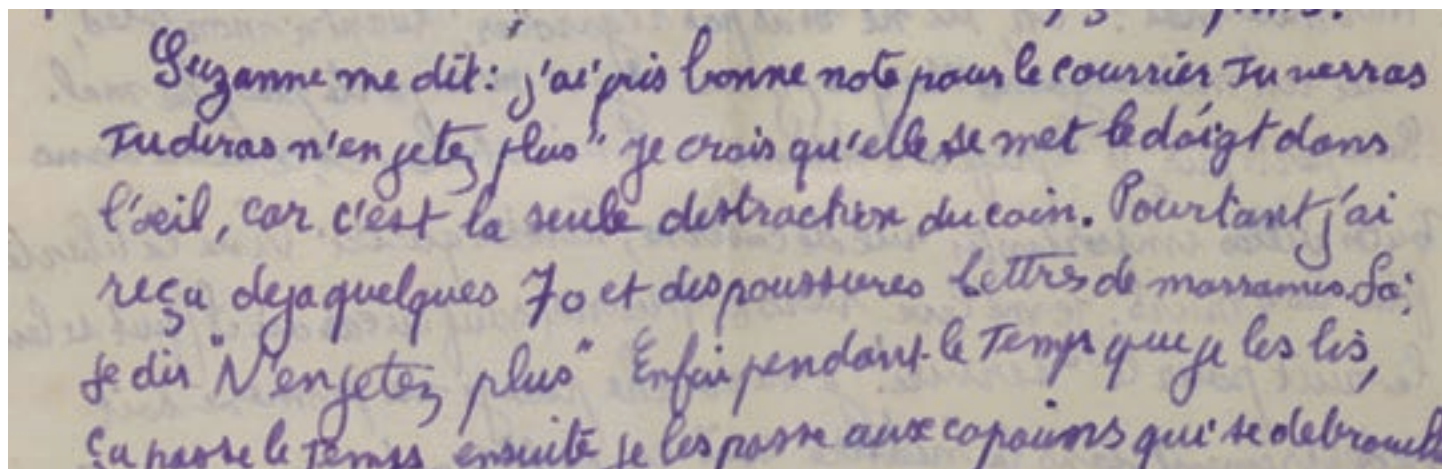 Suzanne me dit: j'ai pris bonne note pour le courrier Tu verras
Tu diras n'en jetez plus" je crois qu'elle se met le doigt dans
l'oeil, car c'est la seule destraction du coin. Pourtant j'ai
reça deja quelques 70 et des poussieres lettres de marraines.
je dis "N'en jetez plus" Enfin pendant le Temps que je les lis,
ça passe le temps ensuite je les passe aux copains qui se debrouill